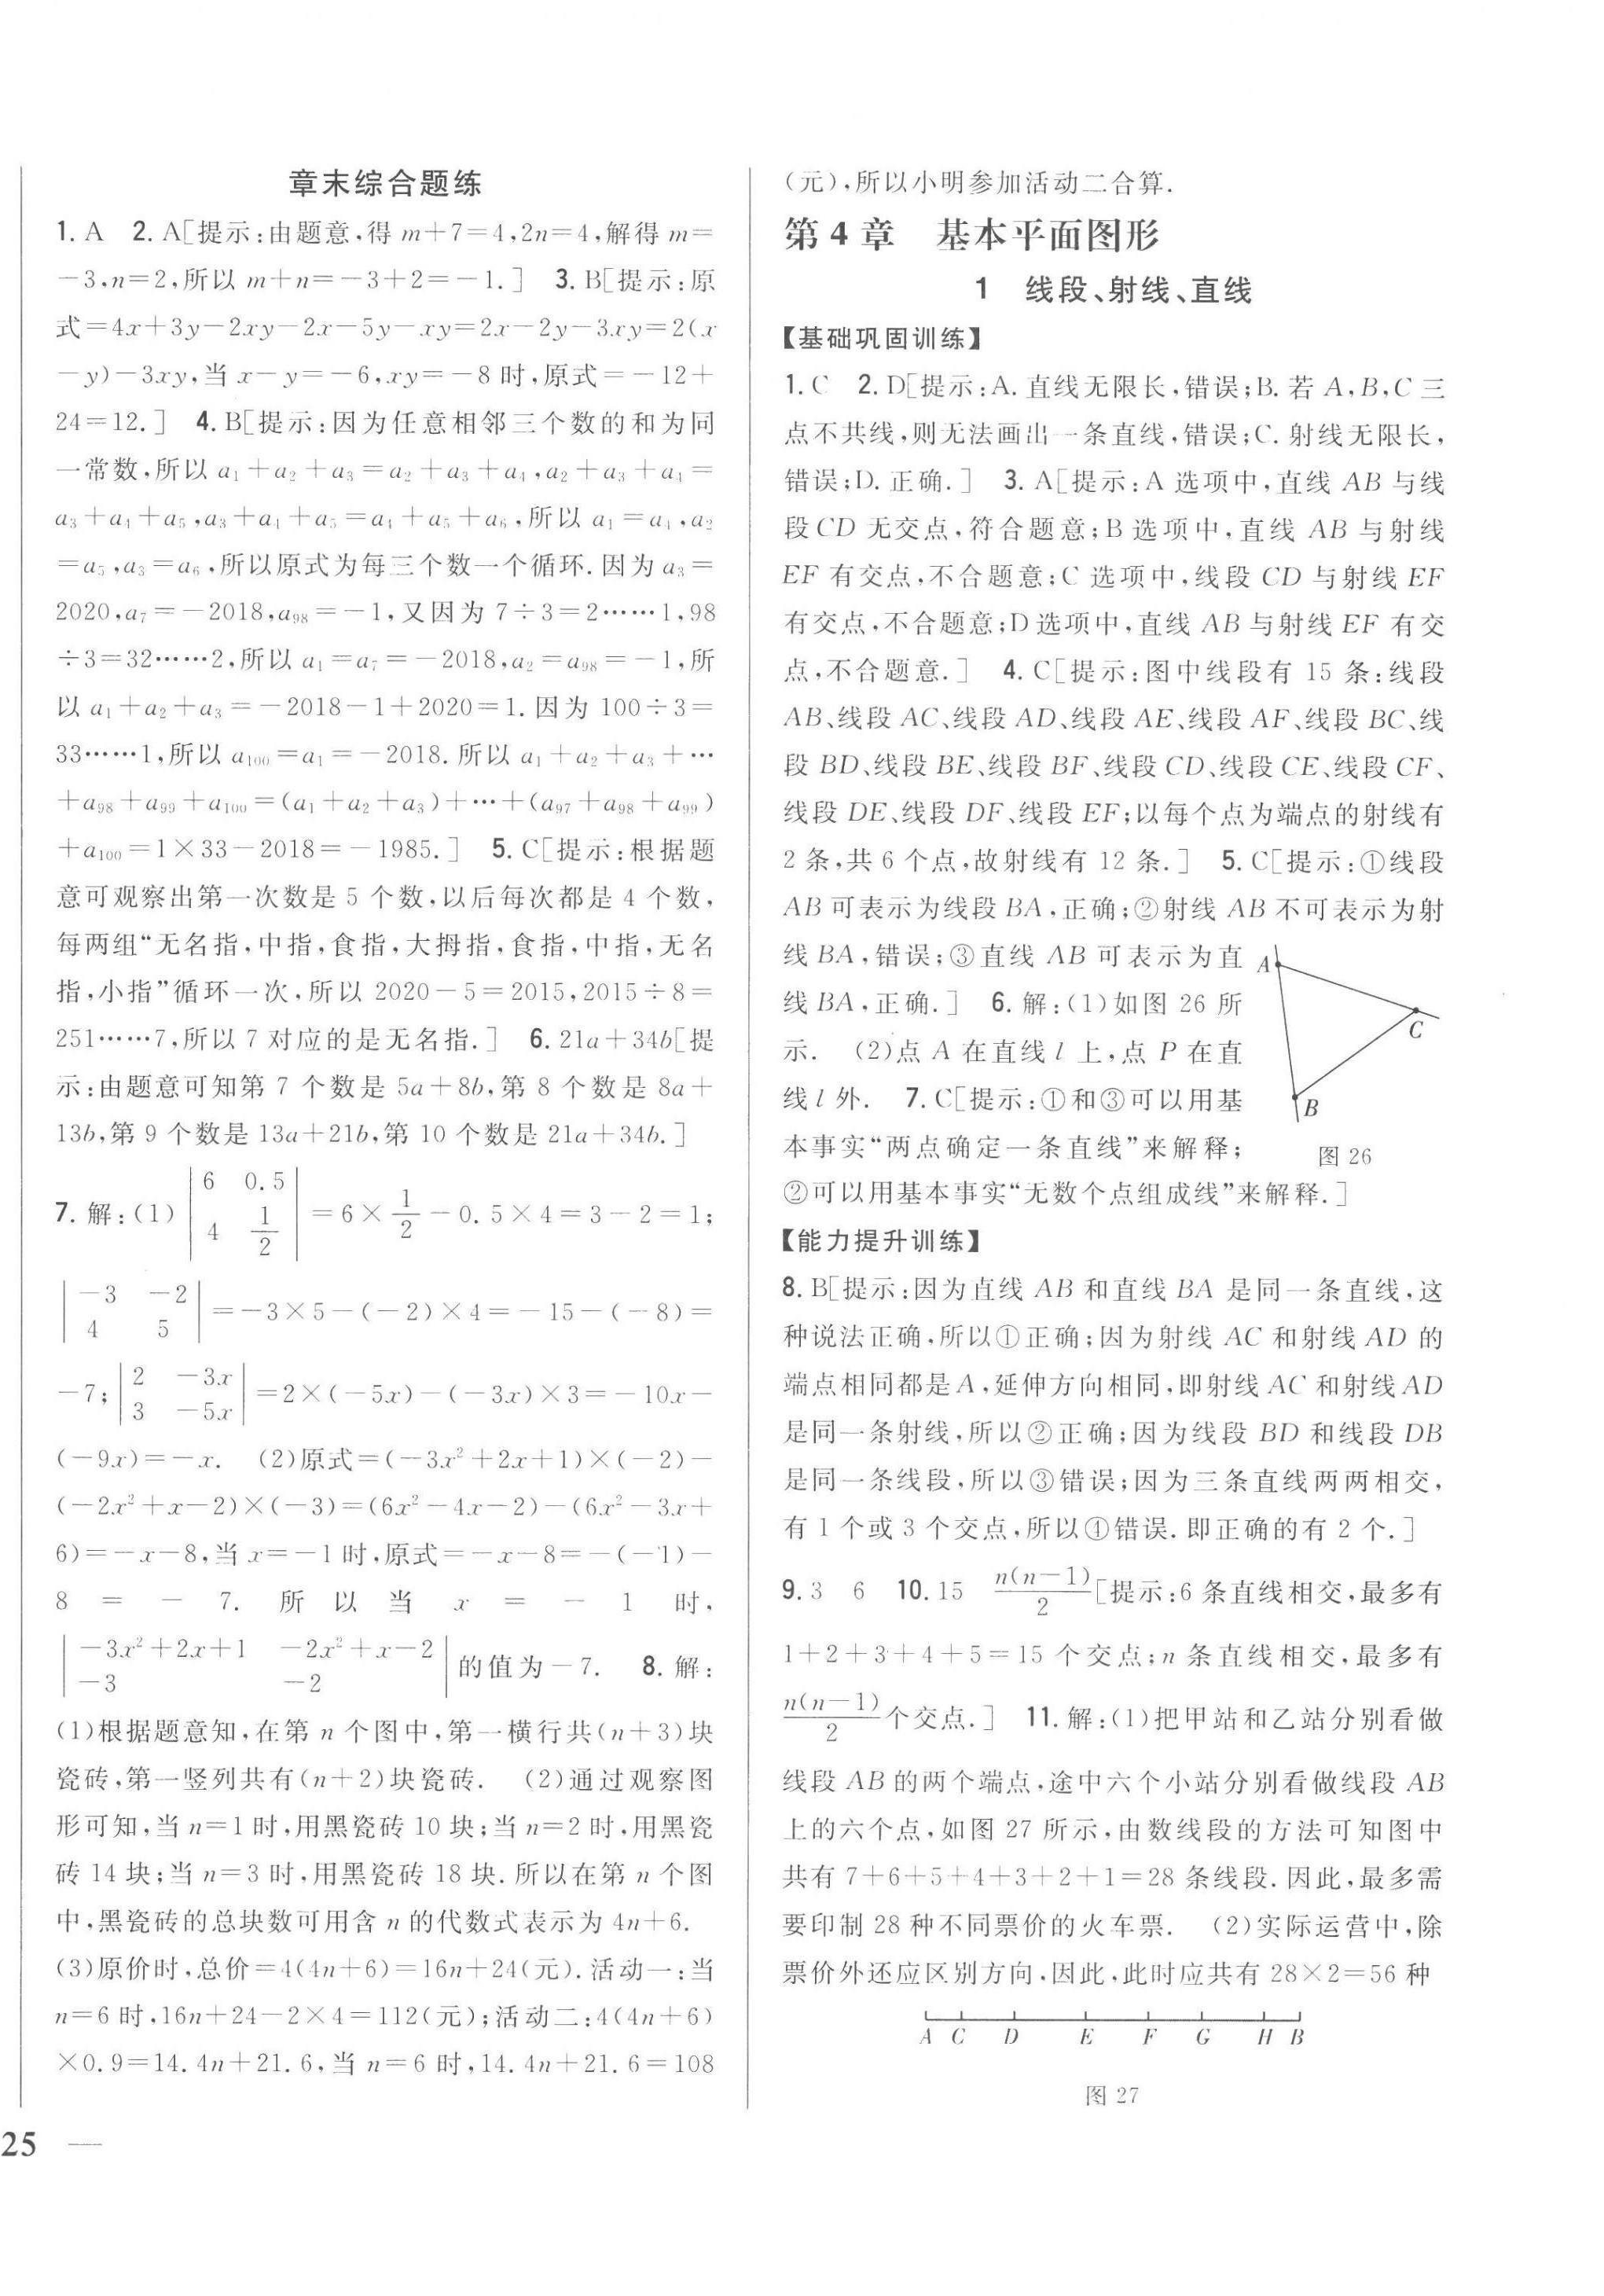 章末综合题练
1. A　2. A[提示:由题意,得 m+7=4,2n=4,解得 m=
-3,n=2,所以 m+n=-3+2=-1.]　3. B[提示:原
式=4x+3y-2xy-2x-5y-xy=2x-2y-3xy=2(x
-y)-3xy,当 x-y=-6,xy=-8 时,原式=-12+
24=12.]　4. B[提示:因为任意相邻三个数的和为同
一常数,所以 a₁+a₂+a₃=a₂+a₃+a₄,a₂+a₃+a₄=
a₃+a₄+a₅,a₃+a₄+a₅=a₄+a₅+a₆,所以 a₁=a₄,a₂
=a₅,a₃=a₆,所以原式为每三个数一个循环.因为 a₃=
2020,a₇=-2018,a₉₈=-1,又因为 7÷3=2……1,98
÷3=32……2,所以 a₁=a₇=-2018,a₂=a₉₈=-1,所
以 a₁+a₂+a₃=-2018-1+2020=1.因为 100÷3=
33……1,所以 a₁₀₀=a₁=-2018.所以 a₁+a₂+a₃+…
+a₉₈+a₉₉+a₁₀₀=(a₁+a₂+a₃)+…+(a₉₇+a₉₈+a₉₉)
+a₁₀₀=1×33-2018=-1985.]　5. C[提示:根据题
意可观察出第一次数是 5 个数,以后每次都是 4 个数,
每两组“无名指,中指,食指,大拇指,食指,中指,无名
指,小指”循环一次,所以 2020-5=2015,2015÷8=
251……7,所以 7 对应的是无名指.]　6. 21a+34b[提
示:由题意可知第 7 个数是 5a+8b,第 8 个数是 8a+
13b,第 9 个数是 13a+21b,第 10 个数是 21a+34b.]
7. 解:(1) |6　0.5; 4　1/2| =6×1/2-0.5×4=3-2=1;
|-3　-2; 4　5| =-3×5-(-2)×4=-15-(-8)=
-7; |2　-3x; 3　-5x| =2×(-5x)-(-3x)×3=-10x-
(-9x)=-x.　(2)原式=(-3x²+2x+1)×(-2)-
(-2x²+x-2)×(-3)=(6x²-4x-2)-(6x²-3x+
6)=-x-8,当 x=-1 时,原式=-x-8=-(-1)-
8 = - 7. 所以当 x = - 1 时,
|-3x²+2x+1　-2x²+x-2; -3　-2| 的值为-7.　8. 解:
(1)根据题意知,在第 n 个图中,第一横行共(n+3)块
瓷砖,第一竖列共有(n+2)块瓷砖.　(2)通过观察图
形可知,当 n=1 时,用黑瓷砖 10 块;当 n=2 时,用黑瓷
砖 14 块;当 n=3 时,用黑瓷砖 18 块.所以在第 n 个图
中,黑瓷砖的总块数可用含 n 的代数式表示为 4n+6.
(3)原价时,总价=4(4n+6)=16n+24(元).活动一:当
n=6 时,16n+24-2×4=112(元);活动二:4(4n+6)
×0.9=14.4n+21.6,当 n=6 时,14.4n+21.6=108
25 —
(元),所以小明参加活动二合算.
第 4 章　基本平面图形
1　线段、射线、直线
【基础巩固训练】
1. C　2. D[提示:A. 直线无限长,错误;B. 若 A,B,C 三
点不共线,则无法画出一条直线,错误;C. 射线无限长,
错误;D. 正确.]　3. A[提示:A 选项中,直线 AB 与线
段 CD 无交点,符合题意;B 选项中,直线 AB 与射线
EF 有交点,不合题意;C 选项中,线段 CD 与射线 EF
有交点,不合题意;D 选项中,直线 AB 与射线 EF 有交
点,不合题意.]　4. C[提示:图中线段有 15 条:线段
AB、线段 AC、线段 AD、线段 AE、线段 AF、线段 BC、线
段 BD、线段 BE、线段 BF、线段 CD、线段 CE、线段 CF、
线段 DE、线段 DF、线段 EF;以每个点为端点的射线有
2 条,共 6 个点,故射线有 12 条.]　5. C[提示:①线段
AB 可表示为线段 BA,正确;②射线 AB 不可表示为射
线 BA,错误;③直线 AB 可表示为直
线 BA,正确.]　6. 解:(1)如图 26 所
示.　(2)点 A 在直线 l 上,点 P 在直
线 l 外.　7. C[提示:①和③可以用基
本事实“两点确定一条直线”来解释;
②可以用基本事实“无数个点组成线”来解释.]
A
C
B
图 26
【能力提升训练】
8. B[提示:因为直线 AB 和直线 BA 是同一条直线,这
种说法正确,所以①正确;因为射线 AC 和射线 AD 的
端点相同都是 A,延伸方向相同,即射线 AC 和射线 AD
是同一条射线,所以②正确;因为线段 BD 和线段 DB
是同一条线段,所以③错误;因为三条直线两两相交,
有 1 个或 3 个交点,所以④错误.即正确的有 2 个.]
9. 3　6　10. 15　n(n-1)/2[提示:6 条直线相交,最多有
1+2+3+4+5=15 个交点;n 条直线相交,最多有
n(n-1)/2个交点.]　11. 解:(1)把甲站和乙站分别看做
线段 AB 的两个端点,途中六个小站分别看做线段 AB
上的六个点,如图 27 所示,由数线段的方法可知图中
共有 7+6+5+4+3+2+1=28 条线段.因此,最多需
要印制 28 种不同票价的火车票.　(2)实际运营中,除
票价外还应区别方向,因此,此时应共有 28×2=56 种
A C D E F G H B
图 27